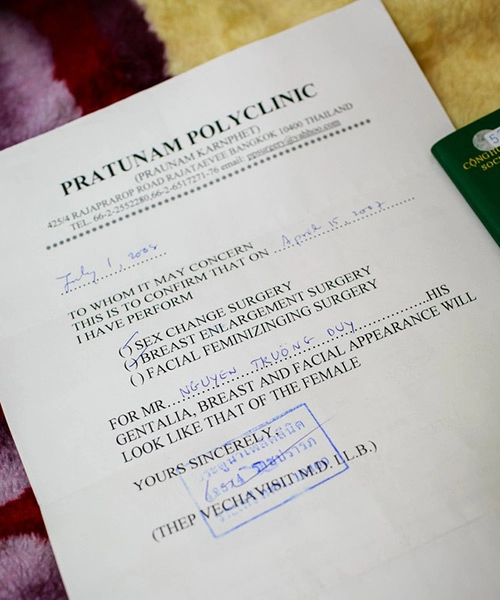 PRATUNAM POLYCLINIC
(PRAUNAM KARNPHET)
425/4 RAJAPRAROP ROAD RAJATAEVEE BANGKOK 10400 THAILAND
TEL. 66-2-2552280,66-2-6517271-76 email: ppsurgery@yahoo.com
July 1 2006
TO WHOM IT MAY CONCERN
THIS IS TO CONFIRM THAT ON April 15, 2007
I HAVE PERFORM
( ) SEX CHANGE SURGERY
( ) BREAST ENLARGEMENT SURGERY
( ) FACIAL FEMINIZINGING SURGERY
FOR MR. NGUYEN TRƯỜNG DUY HIS
GENTALIA, BREAST AND FACIAL APPEARANCE WILL
LOOK LIKE THAT OF THE FEMALE
YOURS SINCERELY,
(THEP VECHAVISIT M.D. LL.B.)
CỘNG H